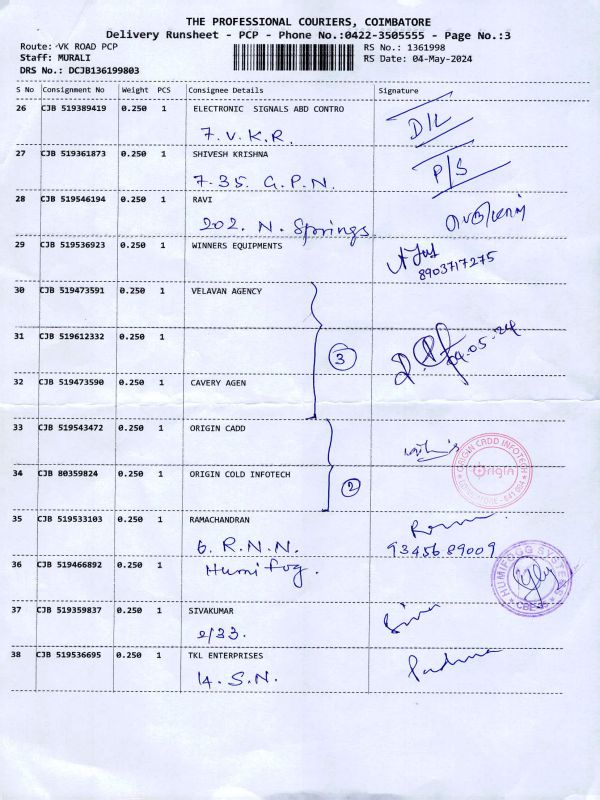 THE PROFESSIONAL COURIERS, COIMBATORE
Delivery Runsheet - PCP - Phone No.:0422-3505555 - Page No.:3
Route: VK ROAD PCP
RS No.: 1361998
Staff: MURALI
RS Date: 04-May-2024
DRS No.: DCJB136199803
S No Consignment No Weight PCS Consignee Details Signature
26 CJB 519389419 0.250 1 ELECTRONIC SIGNALS ABD CONTRO
7. V. K. R. D/L
27 CJB 519361873 0.250 1 SHIVESH KRISHNA
7. 35. G. P. N. P/S
28 CJB 519546194 0.250 1 RAVI
202. N. Springs
29 CJB 519536923 0.250 1 WINNERS EQUIPMENTS
8903717275
30 CJB 519473591 0.250 1 VELAVAN AGENCY
31 CJB 519612332 0.250 1
3 04.05.24
32 CJB 519473590 0.250 1 CAVERY AGEN
33 CJB 519543472 0.250 1 ORIGIN CADD
ORIGIN CADD INFOTECH
origin
34 CJB 80359824 0.250 1 ORIGIN COLD INFOTECH
2
35 CJB 519533103 0.250 1 RAMACHANDRAN
6. R. N. N. 9345689009
36 CJB 519466892 0.250 1 Humi fog.
HUMIFOGG SYSTEMS
37 CJB 519359837 0.250 1 SIVAKUMAR
2/33. Siva
38 CJB 519536695 0.250 1 TKL ENTERPRISES
14. S. N. Padma